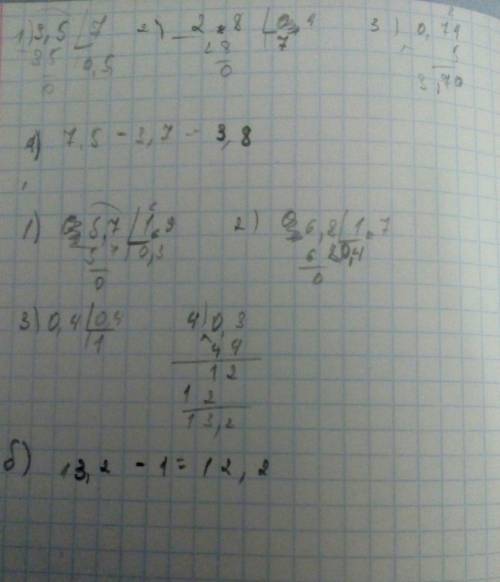 1) 3,5 | 7 2) 2,8 | 0,4 3) 0,74
35 0,5 28 7 5
0 0 3,70
а) 7,5 - 3,7 = 3,8
1) 0,5,7 | 1,9 2) 0,6,8 | 1,7
57 0,3 68 0,4
0 0
3) 0,4 | 0,4 4) 0,3
1 44
12
12
13,2
б) 13,2 - 1 = 12,2